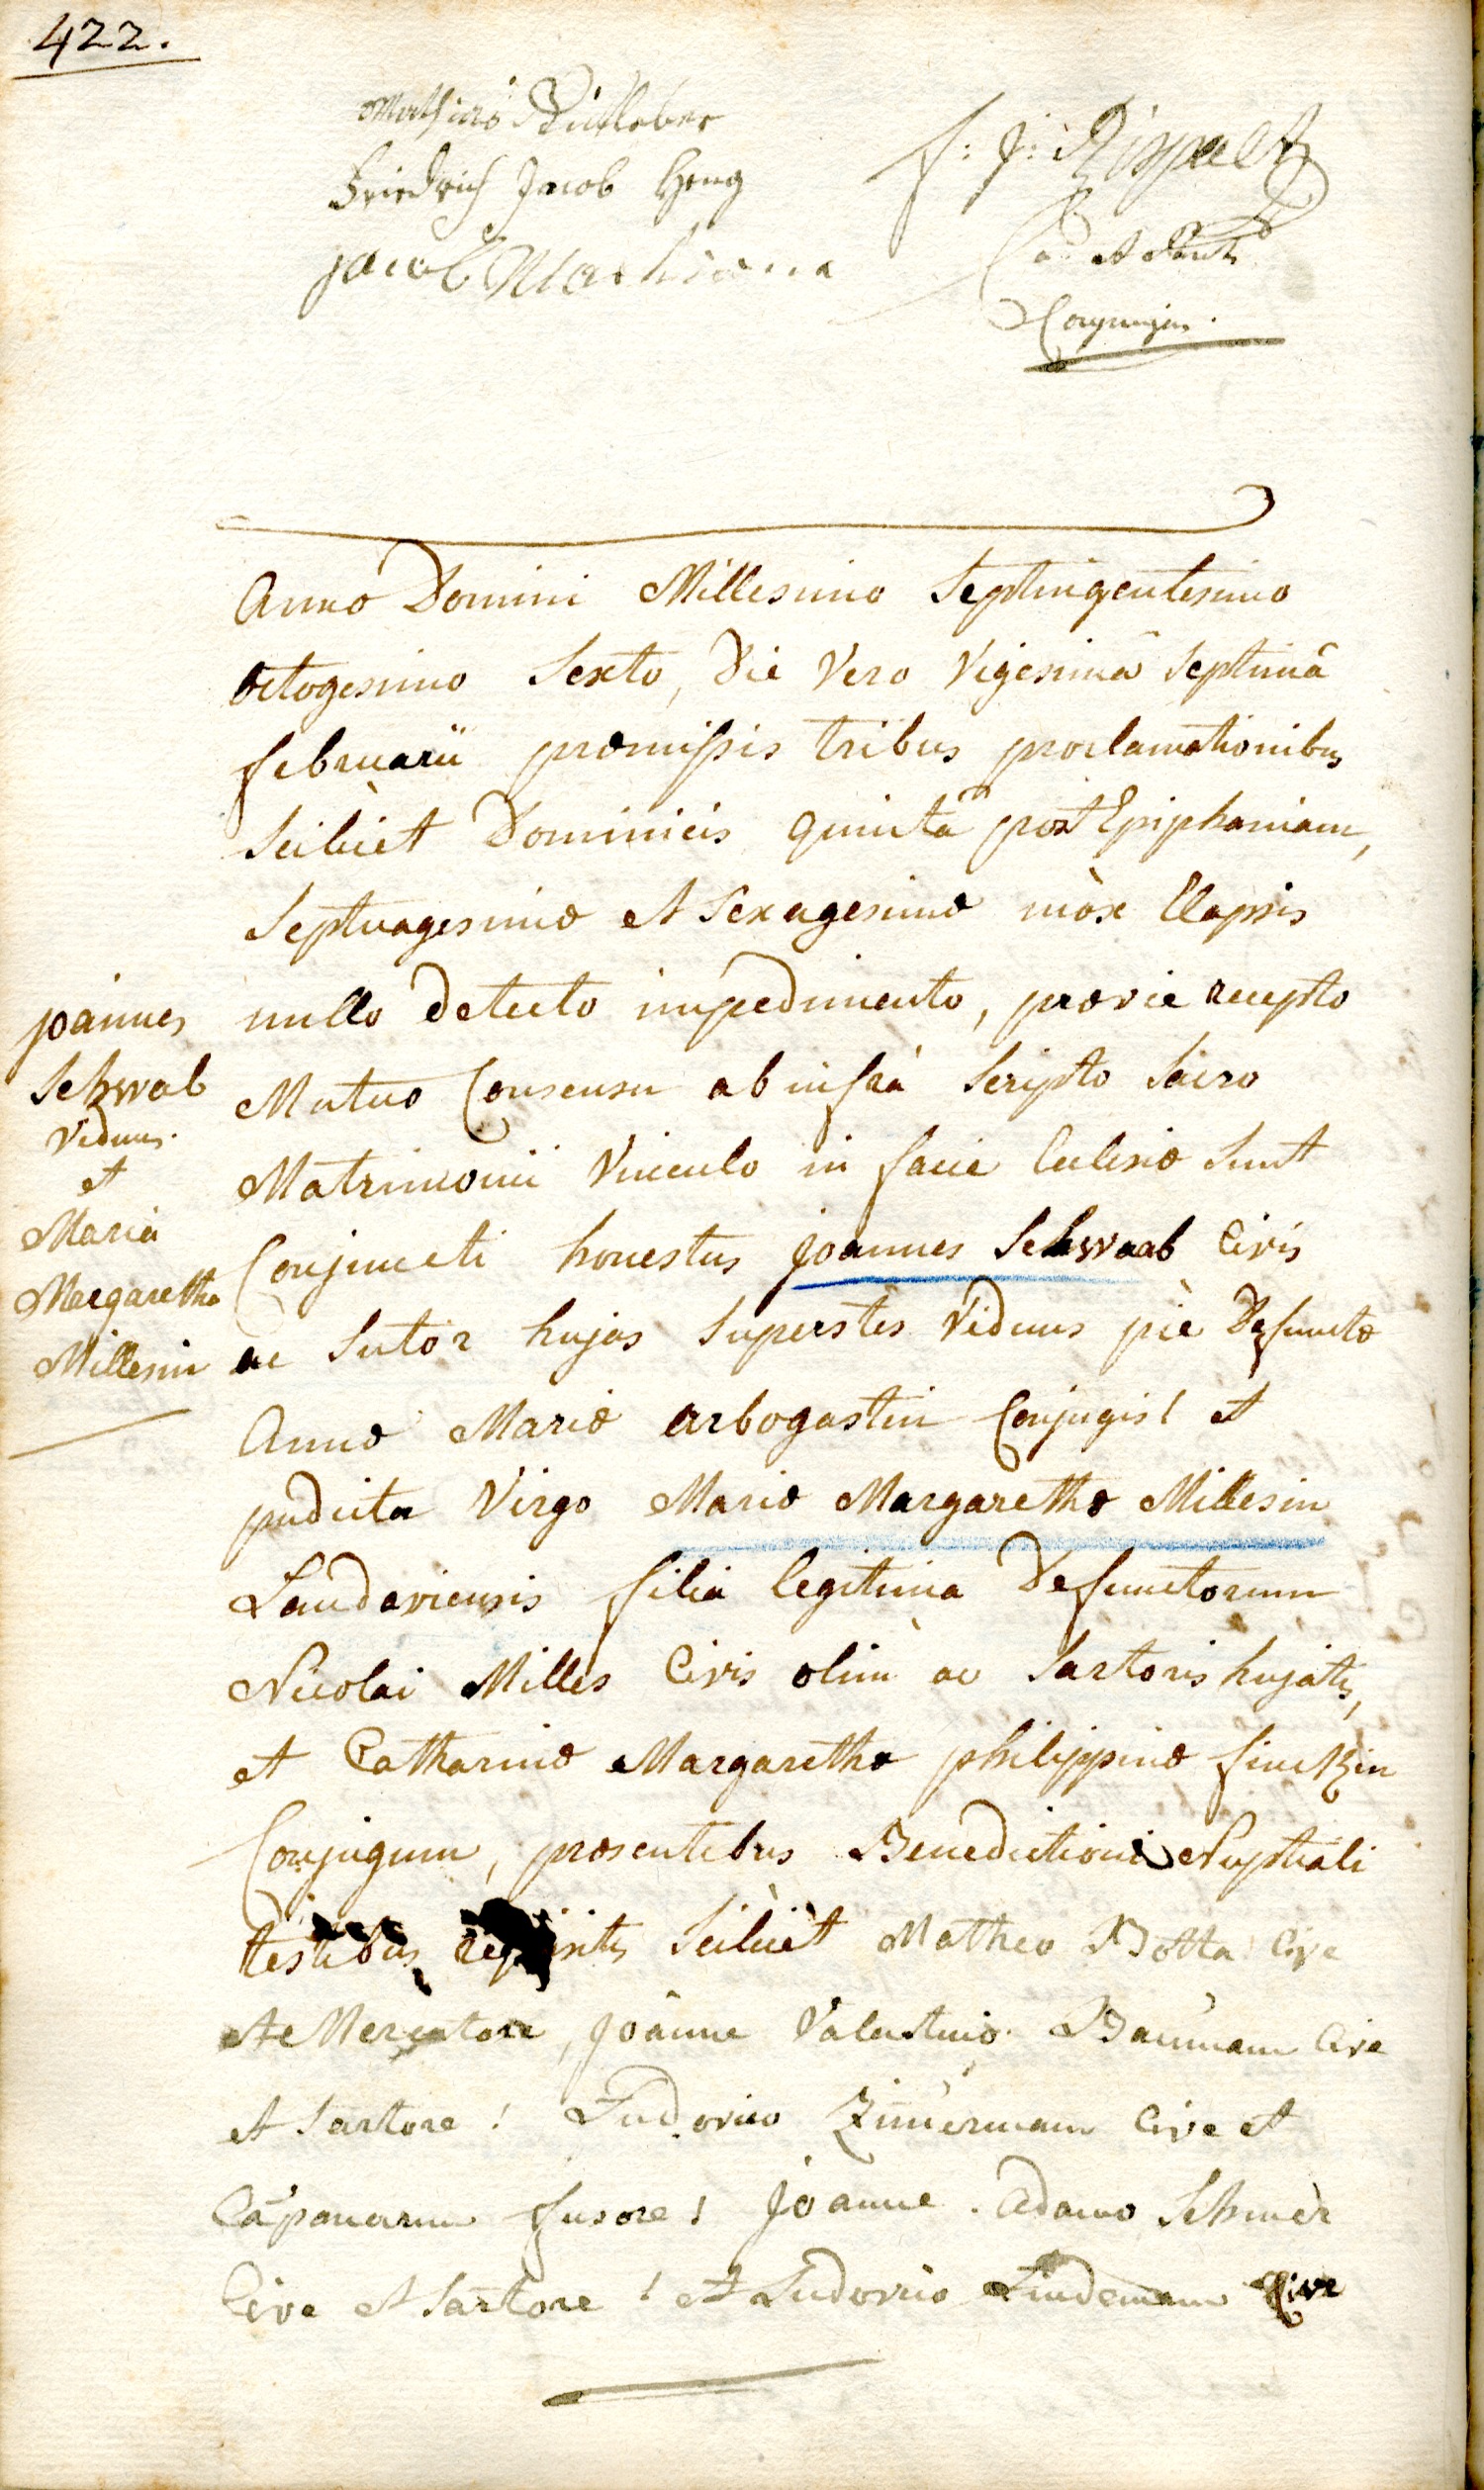 422.
Mathias
Friedrich Jacob Heng
Jacob
f: J:
Anno Domini Millesimo Septingentesimo
octogesimo Sexto, Die Vero Vigesimâ Septimâ
februarii præmissis tribus proclamationibus
Scilicet Dominicis quintâ post Epiphaniam,
Septuagesimæ et Sexagesimæ mòx Elapsis
nullo detecto impedimento, prævie recepto
Mutuo Consensu ab infrà Scripto Sacro
Matrimonii Vinculo in facie Ecclesiæ Sunt
Conjuncti honestus Joannes Schwaab Civis
ac Sutor hujas Superstes Viduus piè Defunctæ
Annæ Mariæ arbogastin Conjugis! et
pudica Virgo Mariæ Margarethæ Millesin
Landaviensis filia legitima Defunctorum
Nicolai Milles Civis olim ac Sartoris hujatis,
et Catharinæ Margarethæ philippinæ
Conjugum, præsentibus Benedictioni Nuptiali
testibus requisitis Scilicèt Matheo Botta Cive
et Mercatore, Joanne Valentino Bauman Cive
et Sartore! Ludovico Zimerman Cive et
Cāpanarum fusore! Joanne Adamo Schmer
Cive et Sartore! et Ludovico Lindeman Cive
Joannes
Schwab
Viduus.
et
Maria
Margaretha
Millesin